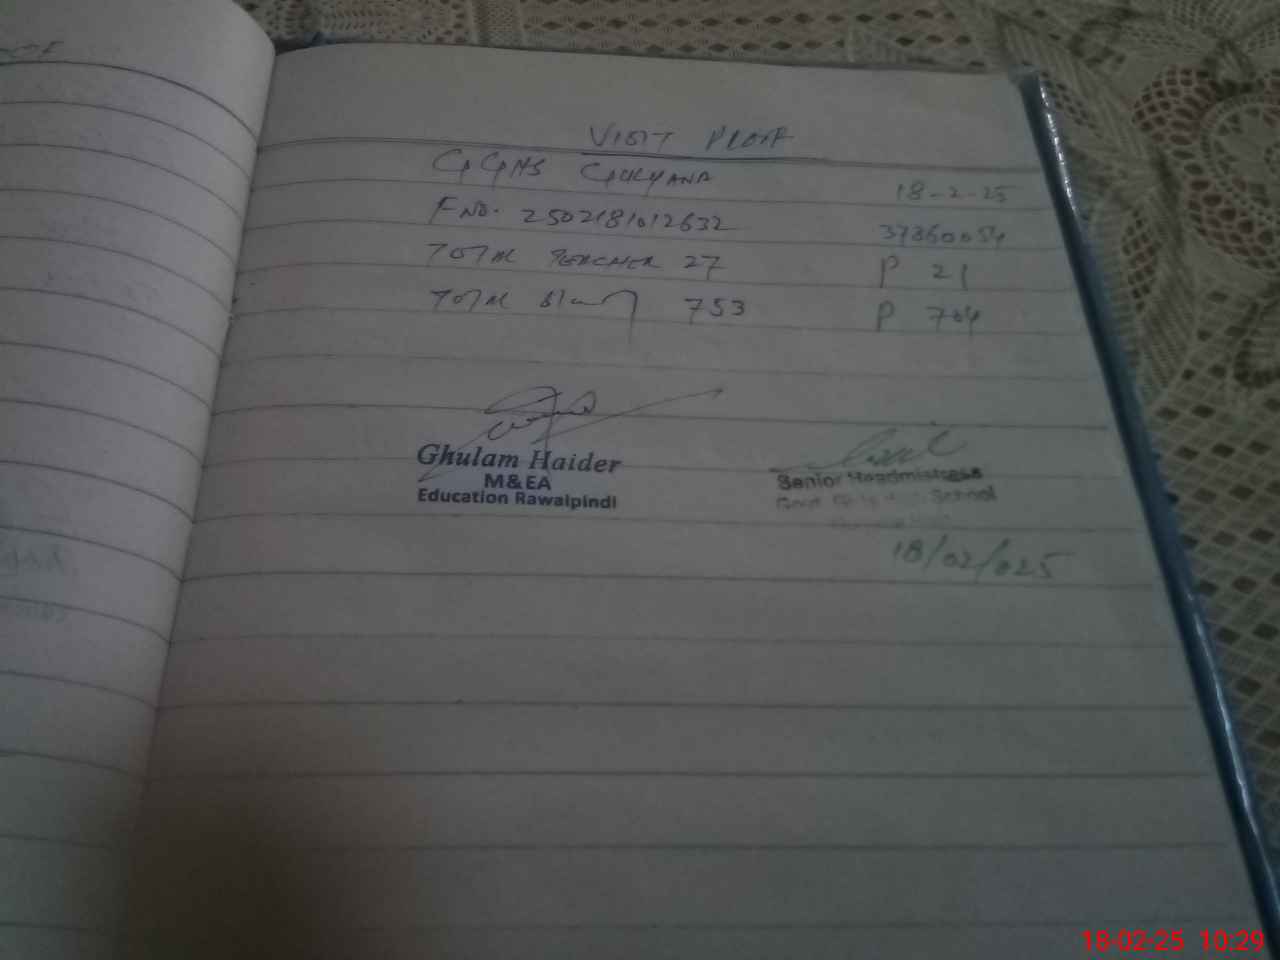 VISIT PROOF
GGHS GULYANA 18-2-25
F NO. 2502181012632 37360054
TOTAL TEACHER 27 P 21
TOTAL 753 P 704
Ghulam Haider
M&EA
Education Rawalpindi
Senior Headmistress
Govt Girls School
18/02/025
18-02-25 10:29